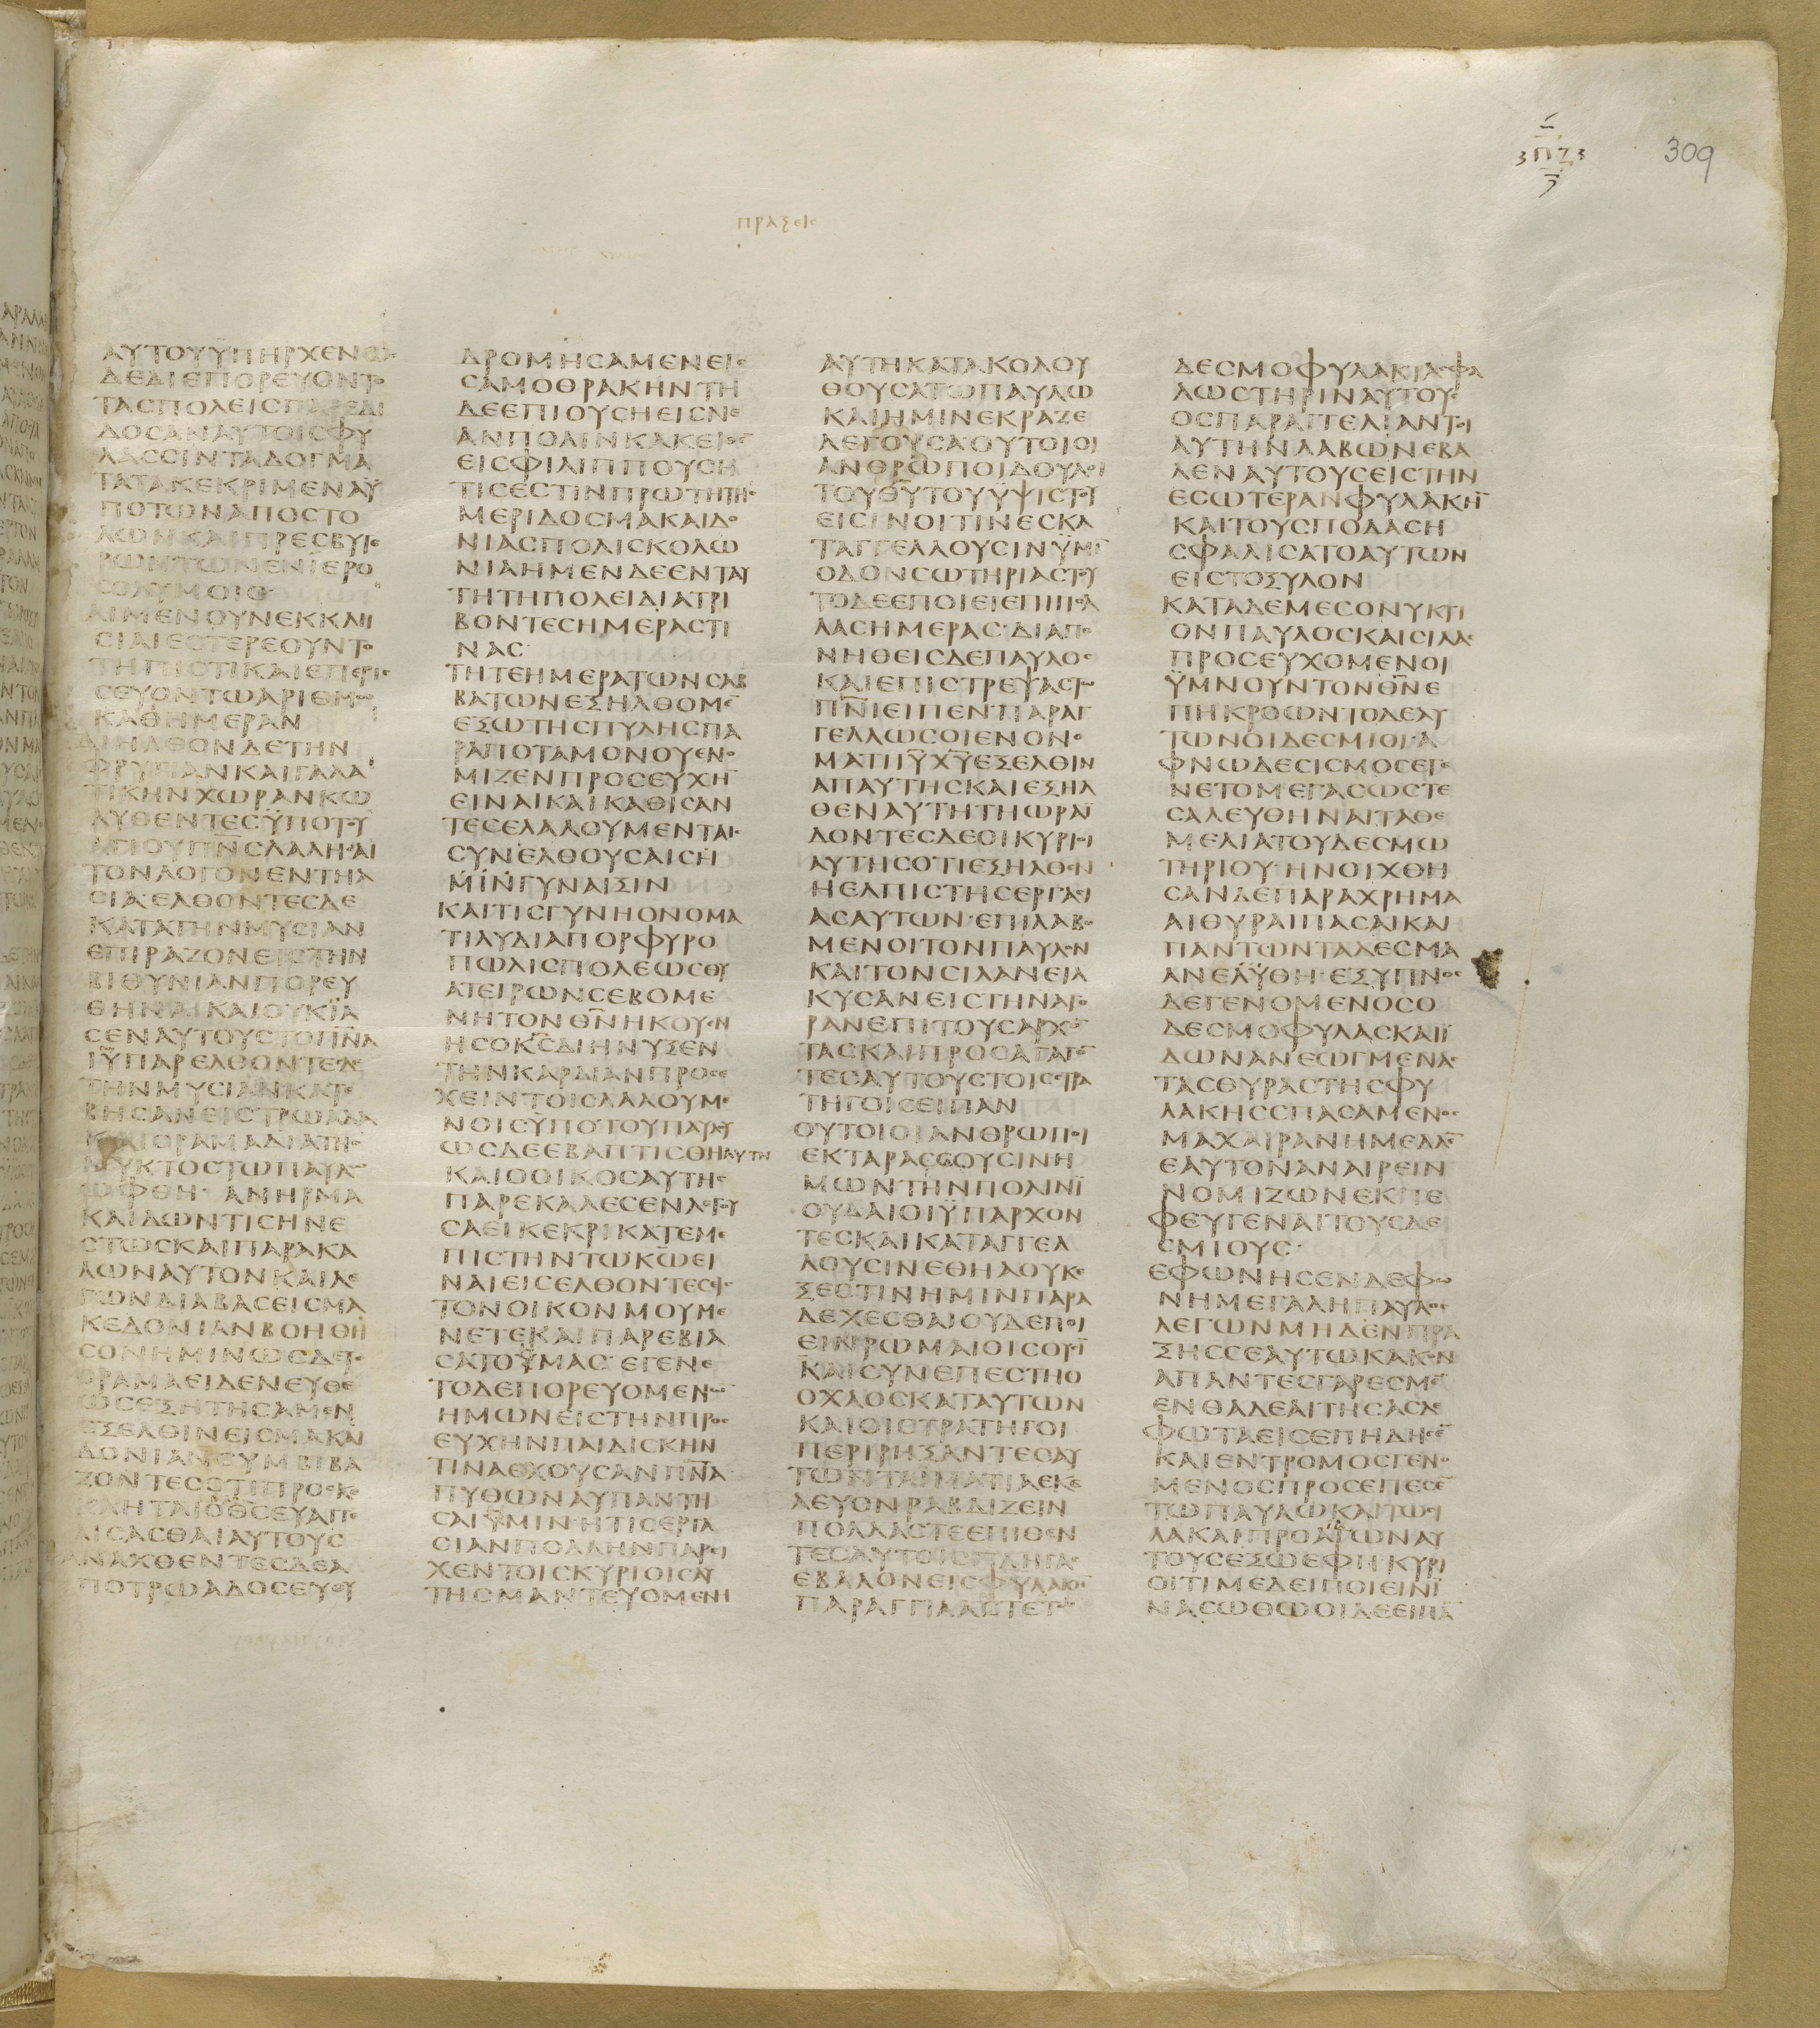 ΠΖ
309
ΠΡΑΞΕΙΣ
ΑΥΤΟΥΫΠΗΡΧΕΝΩΣ
ΔΕΔΙΕΠΟΡΕΥΟΝΤΟ
ΤΑΣΠΟΛΕΙΣΠΑΡΕΔΙ
ΔΟΣΑΝΑΥΤΟΙΣΦΥ
ΛΑΣΣΙΝΤΑΔΟΓΜΑ
ΤΑΤΑΚΕΚΡΙΜΕΝΑΫ
ΠΟΤΩΝΑΠΟΣΤΟ
ΛΩΝΚΑΙΠΡΕΣΒΥΤΕ
ΡΩΝΤΩΝΕΝΪΕΡΟ
ΣΟΛΥΜΟΙΣ
ΑΙΜΕΝΟΥΝΕΚΚΛΗ
ΣΙΑΙΕΣΤΕΡΕΟΥΝΤΟ
ΤΗΠΙΣΤΙΚΑΙΕΠΕΡΙΣ
ΣΕΥΟΝΤΩΑΡΙΘΜΩ
ΚΑΘΗΜΕΡΑΝ
ΔΙΗΛΘΟΝΔΕΤΗΝ
ΦΡΥΓΙΑΝΚΑΙΓΑΛΑ
ΤΙΚΗΝΧΩΡΑΝΚΩ
ΛΥΘΕΝΤΕΣΫΠΟΤΟΥ
ΑΓΙΟΥΠΝΣΛΑΛΗΣΑΙ
ΤΟΝΛΟΓΟΝΕΝΤΗΑ
ΣΙΑ·ΕΛΘΟΝΤΕΣΔΕ
ΚΑΤΑΤΗΝΜΥΣΙΑΝ
ΕΠΙΡΑΖΟΝΕΙΣΤΗΝ
ΒΙΘΥΝΙΑΝΠΟΡΕΥ
ΘΗΝΑΙΚΑΙΟΥΚΪΑ
ΣΕΝΑΥΤΟΥΣΤΟΠΝΑ
ΙΥΠΑΡΕΛΘΟΝΤΕΣΔΕ
ΤΗΝΜΥΣΙΑΝΚΑΤΕ
ΒΗΣΑΝΕΙΣΤΡΩΑΔΑ
ΚΑΙΟΡΑΜΑΔΙΑΤΗΣ
ΝΥΚΤΟΣΤΩΠΑΥΛΩ
ΩΦΘΗ· ΑΝΗΡΜΑ
ΚΑΙΔΩΝΤΙΣΗΝΕ
ΣΤΩΣΚΑΙΠΑΡΑΚΑ
ΛΩΝΑΥΤΟΝΚΑΙΛΕ
ΓΩΝΔΙΑΒΑΣΕΙΣΜΑ
ΚΕΔΟΝΙΑΝΒΟΗΘΗ
ΣΟΝΗΜΙΝΩΣΔΕΤΟ
ΟΡΑΜΑΕΙΔΕΝΕΥΘΕ
ΩΣΕΖΗΤΗΣΑΜΕΝ
ΕΞΕΛΘΙΝΕΙΣΜΑΚΑΙ
ΔΟΝΙΑΝΣΥΜΒΙΒΑ
ΖΟΝΤΕΣΟΤΙΠΡΟΣΚΕ
ΚΛΗΤΑΙΟΘΣΕΥΑΓΓΕ
ΛΙΣΑΣΘΑΙΑΥΤΟΥΣ
ΑΝΑΧΘΕΝΤΕΣΔΕΑ
ΠΟΤΡΩΑΔΟΣΕΥΘΥ
ΔΡΟΜΗΣΑΜΕΝΕΙΣ
ΣΑΜΟΘΡΑΚΗΝΤΗ
ΔΕΕΠΙΟΥΣΗΕΙΣΝΕ
ΑΝΠΟΛΙΝΚΑΚΕΙΘΕΝ
ΕΙΣΦΙΛΙΠΠΟΥΣΗ
ΤΙΣΕΣΤΙΝΠΡΩΤΗΤΗΣ
ΜΕΡΙΔΟΣΜΑΚΑΙΔΟ
ΝΙΑΣΠΟΛΙΣΚΟΛΩ
ΝΙΑΗΜΕΝΔΕΕΝΤΑΥ
ΤΗΤΗΠΟΛΕΙΔΙΑΤΡΙ
ΒΟΝΤΕΣΗΜΕΡΑΣΤΙ
ΝΑΣ·
ΤΗΤΕΗΜΕΡΑΤΩΝΣΑΒ
ΒΑΤΩΝΕΞΗΛΘΟΜΕ̅
ΕΞΩΤΗΣΠΥΛΗΣΠΑ
ΡΑΠΟΤΑΜΟΝΟΥΕΝΟ
ΜΙΖΕΝΠΡΟΣΕΥΧΗ̅
ΕΙΝΑΙΚΑΙΚΑΘΙΣΑΝ
ΤΕΣΕΛΑΛΟΥΜΕΝΤΑΙΣ
ΣΥΝΕΛΘΟΥΣΑΙΣΗ
ΜΙΝΓΥΝΑΙΞΙΝ
ΚΑΙΤΙΣΓΥΝΗΟΝΟΜΑ
ΤΙΛΥΔΙΑΠΟΡΦΥΡΟ
ΠΩΛΙΣΠΟΛΕΩΣΘΥ
ΑΤΕΙΡΩΝΣΕΒΟΜΕ
ΝΗΤΟΝΘΝΗΚΟΥΕΝ
ΗΣΟΚΣΔΙΗΝΥΞΕΝ
ΤΗΝΚΑΡΔΙΑΝΠΡΟΣΕ
ΧΕΙΝΤΟΙΣΛΑΛΟΥΜΕ
ΝΟΙΣΫΠΟΤΟΥΠΑΥΛΟΥ
ΩΣΔΕΕΒΑΠΤΙΣΘΗΑΥΤΗ
ΚΑΙΟΟΙΚΟΣΑΥΤΗΣ
ΠΑΡΕΚΑΛΕΣΕΝΛΕΓΟΥ
ΣΑΕΙΚΕΚΡΙΚΑΤΕΜΕ
ΠΙΣΤΗΝΤΩΚΩΕΙ
ΝΑΙΕΙΣΕΛΘΟΝΤΕΣΕΙΣ
ΤΟΝΟΙΚΟΝΜΟΥΜΕ
ΝΕΤΕΚΑΙΠΑΡΕΒΙΑ
ΣΑΤΟΫΜΑΣ· ΕΓΕΝΕ
ΤΟΔΕΠΟΡΕΥΟΜΕΝΩ̅
ΗΜΩΝΕΙΣΤΗΝΠΡΟΣ
ΕΥΧΗΝΠΑΙΔΙΣΚΗΝ
ΤΙΝΑΕΧΟΥΣΑΝΠΝΑ
ΠΥΘΩΝΑΥΠΑΝΤΗ
ΣΑΙΫΜΙΝ·ΗΤΙΣΕΡΓΑ
ΣΙΑΝΠΟΛΛΗΝΠΑΡΕΙ
ΧΕΝΤΟΙΣΚΥΡΙΟΙΣΑΥ
ΤΗΣΜΑΝΤΕΥΟΜΕΝΗ
ΑΥΤΗΚΑΤΑΚΟΛΟΥ
ΘΟΥΣΑΤΩΠΑΥΛΩ
ΚΑΙΗΜΙΝΕΚΡΑΖΕ
ΛΕΓΟΥΣΑ·ΟΥΤΟΙΟΙ
ΑΝΘΡΩΠΟΙΔΟΥΛΟΙ
ΤΟΥΘΥΤΟΥΫΨΙΣΤΟΥ
ΕΙΣΙΝΟΙΤΙΝΕΣΚΑ
ΤΑΓΓΕΛΛΟΥΣΙΝΫΜΙ̅
ΟΔΟΝΣΩΤΗΡΙΑΣΤΟΥ
ΤΟΔΕΕΠΟΙΕΙΕΠΙΠΟΛ
ΛΑΣΗΜΕΡΑΣ·ΔΙΑΠΟ
ΝΗΘΕΙΣΔΕΠΑΥΛΟΣ
ΚΑΙΕΠΙΣΤΡΕΨΑΣΤΩ
ΠΝΙΕΙΠΕΝ·ΠΑΡΑΓ
ΓΕΛΛΩΣΟΙΕΝΟΝΟ
ΜΑΤΙΙΥΧΥΕΞΕΛΘΙΝ
ΑΠΑΥΤΗΣΚΑΙΕΞΗΛ
ΘΕΝΑΥΤΗΤΗΩΡΑΪ
ΔΟΝΤΕΣΔΕΟΙΚΥΡΙΟΙ
ΑΥΤΗΣΟΤΙΕΞΗΛΘΕΝ
ΗΕΛΠΙΣΤΗΣΕΡΓΑΣΙ
ΑΣΑΥΤΩΝ·ΕΠΙΛΑΒΟ
ΜΕΝΟΙΤΟΝΠΑΥΛΟΝ
ΚΑΙΤΟΝΣΙΛΑΝΕΙΛ
ΚΥΣΑΝΕΙΣΤΗΝΑΓΟ
ΡΑΝΕΠΙΤΟΥΣΑΡΧΟ̅
ΤΑΣΚΑΙΠΡΟΣΑΓΑΓΟ̅
ΤΕΣΑΥΤΟΥΣΤΟΙΣΣΤΡΑ
ΤΗΓΟΙΣΕΙΠΑΝ
ΟΥΤΟΙΟΙΑΝΘΡΩΠΟΙ
ΕΚΤΑΡΑΣΣΟΥΣΙΝΗ
ΜΩΝΤΗΝΠΟΛΙΝΪ
ΟΥΔΑΙΟΙΫΠΑΡΧΟΝ
ΤΕΣΚΑΙΚΑΤΑΓΓΕΛ
ΛΟΥΣΙΝΕΘΗΑΟΥΚΕ
ΞΕΣΤΙΝΗΜΙΝΠΑΡΑ
ΔΕΧΕΣΘΑΙΟΥΔΕΠΟΙ
ΕΙΝΡΩΜΑΙΟΙΣΟΥΣΙ
ΚΑΙΣΥΝΕΠΕΣΤΗΟ
ΟΧΛΟΣΚΑΤΑΥΤΩΝ
ΚΑΙΟΙΣΤΡΑΤΗΓΟΙ
ΠΕΡΙΡΗΞΑΝΤΕΣΑΥ
ΤΩΝΤΑΙΜΑΤΙΑΕΚΕ
ΛΕΥΟΝΡΑΒΔΙΖΕΙΝ
ΠΟΛΛΑΣΤΕΕΠΙΘΕΝ
ΤΕΣΑΥΤΟΙΣΠΛΗΓΑΣ
ΕΒΑΛΟΝΕΙΣΦΥΛΑΚΗ̅
ΠΑΡΑΓΓΙΛΑΝΤΕΣΤΩ
ΔΕΣΜΟΦΥΛΑΚΙΑΣΦΑ
ΛΩΣΤΗΡΙΝΑΥΤΟΥΣ
ΟΣΠΑΡΑΓΓΕΛΙΑΝΤΟΙ
ΑΥΤΗΝΛΑΒΩΝΕΒΑ
ΛΕΝΑΥΤΟΥΣΕΙΣΤΗΝ
ΕΣΩΤΕΡΑΝΦΥΛΑΚΗ̅
ΚΑΙΤΟΥΣΠΟΔΑΣΗ
ΣΦΑΛΙΣΑΤΟΑΥΤΩΝ
ΕΙΣΤΟΞΥΛΟΝ
ΚΑΤΑΔΕΜΕΣΟΝΥΚΤΙ
ΟΝΠΑΥΛΟΣΚΑΙΣΙΛΑΣ
ΠΡΟΣΕΥΧΟΜΕΝΟΙ
ΫΜΝΟΥΝΤΟΝΘΝΕ
ΠΗΚΡΟΩΝΤΟΔΕΑΥ
ΤΩΝΟΙΔΕΣΜΙΟΙ·Α
ΦΝΩΔΕΣΙΣΜΟΣΕΓΕ
ΝΕΤΟΜΕΓΑΣΩΣΤΕ
ΣΑΛΕΥΘΗΝΑΙΤΑΘΕ
ΜΕΛΙΑΤΟΥΔΕΣΜΩ
ΤΗΡΙΟΥ·ΗΝΟΙΧΘΗ
ΣΑΝΔΕΠΑΡΑΧΡΗΜΑ
ΑΙΘΥΡΑΙΠΑΣΑΙΚΑΙ
ΠΑΝΤΩΝΤΑΔΕΣΜΑ
ΑΝΕΛΥΘΗ·ΕΞΥΠΝΟΣ
ΔΕΓΕΝΟΜΕΝΟΣΟ
ΔΕΣΜΟΦΥΛΑΞΚΑΙΪ
ΔΩΝΑΝΕΩΓΜΕΝΑΣ
ΤΑΣΘΥΡΑΣΤΗΣΦΥ
ΛΑΚΗΣΣΠΑΣΑΜΕΝΟΣ
ΜΑΧΑΙΡΑΝΗΜΕΛΛΕ̅
ΕΑΥΤΟΝΑΝΑΙΡΕΙΝ
ΝΟΜΙΖΩΝΕΚΠΕ
ΦΕΥΓΕΝΑΙΤΟΥΣΔΕ
ΣΜΙΟΥΣ·
ΕΦΩΝΗΣΕΝΔΕΦΩ
ΝΗΜΕΓΑΛΗΠΑΥΛΟΣ
ΛΕΓΩΝΜΗΔΕΝΠΡΑ
ΞΗΣΣΕΑΥΤΩΚΑΚΟΝ
ΑΠΑΝΤΕΣΓΑΡΕΣΜΕ̅
ΕΝΘΑΔΕΑΙΤΗΣΑΣΔΕ
ΦΩΤΑΕΙΣΕΠΗΔΗΣΕ̅
ΚΑΙΕΝΤΡΟΜΟΣΓΕΝΟ
ΜΕΝΟΣΠΡΟΣΕΠΕΣΕ̅
ΤΩΠΑΥΛΩΚΑΙΤΩΣΙ
ΛΑΚΑΙΠΡΟΑΓΩΝΑΥ
ΤΟΥΣΕΞΩΕΦΗ·ΚΥΡΙ
ΟΙΤΙΜΕΔΕΙΠΟΙΕΙΝΪ
ΝΑΣΩΘΩΟΙΔΕΕΙΠΑ̅